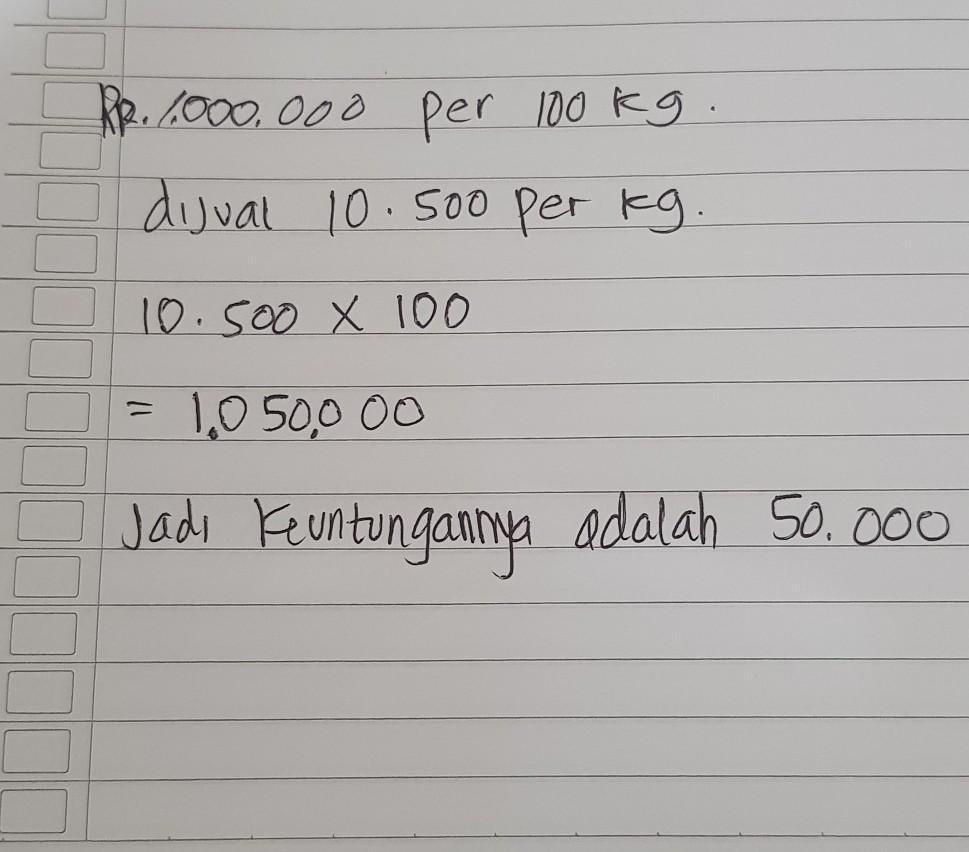 Rp. 1.000.000 per 100 kg.
dijual 10.500 per kg.
10.500 x 100
= 1.050.000
Jadi Keuntungannya adalah 50.000